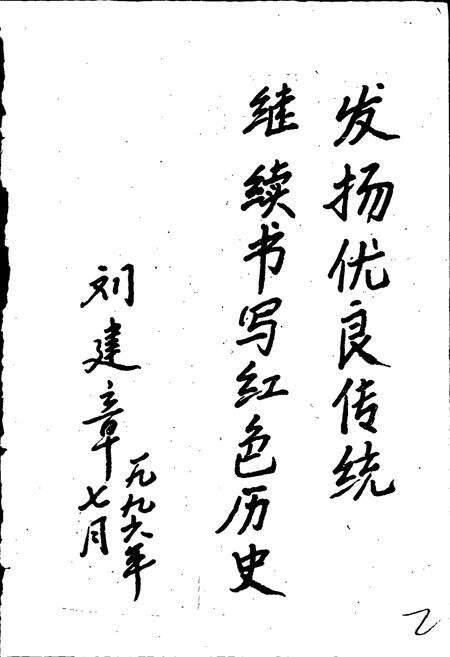 发扬优良传统
继续书写红色历史
刘建章
一九九六年
七月